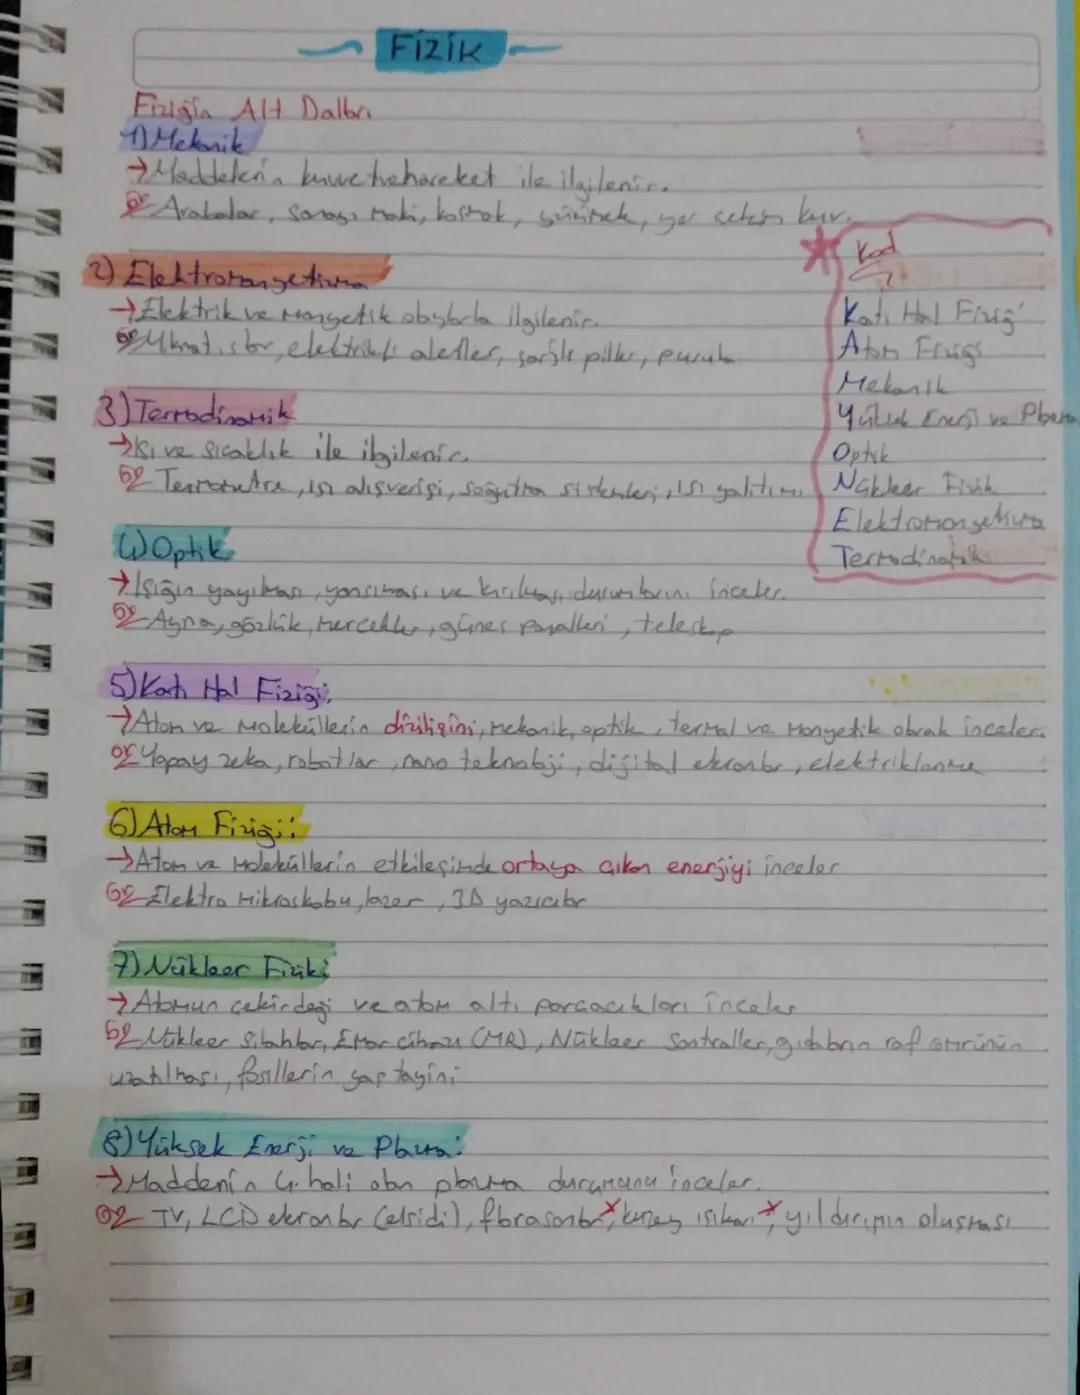 FİZİK
Fiziğin Alt Dalları
1) Mekanik
→ Maddelerin kuvvet hareket ile ilgilenir.
ör Arabalar, koşmak, yürümek, yer çekim kuv.
2) Elektromanyetizma
→ Elektrik ve manyetik olaylarla ilgilenir.
ör Mıknatıslar, elektrikli aletler, şarjlı piller, pusula
3) Termodinamik
→ Isı ve sıcaklık ile ilgilenir.
ör Termometre, ısı alışverişi, soğutma sistemleri, ısı yalıtımı
4) Optik
→ Işığın yayılması, yansıması ve kırılması durumlarını inceler.
ör Ayna, gözlük, mercekler, güneş panelleri, teleskop
5) Katı Hal Fiziği:
→ Atom ve moleküllerin dizilişini, mekanik, optik, termal ve manyetik olarak inceler.
ör Yapay zeka, robotlar, nano teknoloji, dijital ekranlar, elektriklenme
6) Atom Fiziği:
→ Atom ve moleküllerin etkileşimde ortaya çıkan enerjiyi inceler
ör Elektro mikroskobu, lazer, 3D yazıcılar
7) Nükleer Fizik:
→ Atomun çekirdeği ve atom altı parçacıkları inceler
ör Nükleer silahlar, Emar cihazı (MR), Nükleer Santraller, gıdaların raf ömrünün
uzatılması, fosillerin yaş tayini
8) Yüksek Enerji ve Plazma:
→ Maddenin 4. hali olan plazma durumunu inceler.
ör TV, LCD ekranlar (elsidi), florasanlar, kuzey ışıkları, yıldırımın oluşması
Kod
Katı Hal Fiziği
Atom Fiziği
Mekanik
Yüksek Enerji ve Plazma
Optik
Nükleer Fizik
Elektromanyetizma
Termodinamik